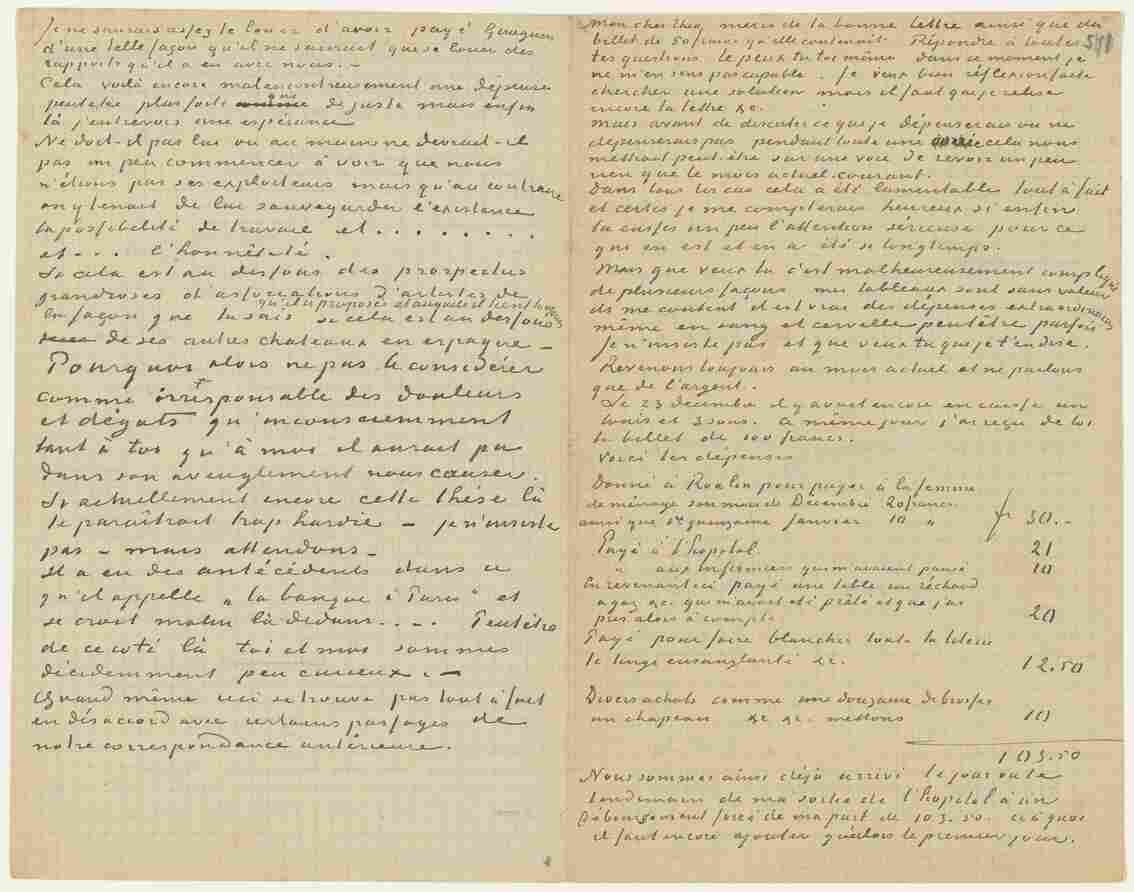 Je ne saurais assez te louer d'avoir payé Gauguin
d'une telle façon qu'il ne saurait que se louer des
rapports qu'il a eu avec nous. –
Cela voilà encore malencontreusement une dépense
peutetre plus forte que de juste mais enfin
là j'entrevois une espérance
Ne doit-il pas lui ou au moins ne devrait-il
pas un peu commencer à voir que nous
n'étions pas ses exploiteurs mais qu'au contraire
on tenait de lui sauvegarder l'existence
la possibilité de travail et . . . . . . . .
et . . . l'honnêteté.
Si cela est au dessous des prospectus
grandioses d'associations d'artistes
qu'il a proposés et auquel il tient toujours
la façon que tu sais si cela est au dessous
de ses autres chateaux en espagne –
Pourquoi alors ne pas le considérer
comme irresponsable des douleurs
et dégats qu'inconsciemment
tant à toi qu'à moi il aurait pu
dans son aveuglement nous causer.
Si actuellement encore cette thèse là
te paraîtrait trop hardie – je n'insiste
pas – mais attendons –
Il a eu des antécédents dans ce
qu'il appelle „la banque à Paris" et
se croit malin là dedans .... Peutetre
de ce coté là toi et moi sommes
décidemment peu curieux. –
Quand même ceci se trouve pas tout à fait
en désaccord avec certains passages de
notre correspondance antérieure.
Mon cher Theo, merci de ta bonne lettre ainsi que du
billet de 50 francs qu'elle contenait. Répondre à toutes 571
tes questions le peux tu toi même dans ce moment je
ne m'en sens pas capable. Je veux bien réflexion faite
chercher une solution mais il faut que je relise
encore ta lettre &c.
Mais avant de discuter ce que je dépenserais ou ne
dépenserais pas pendant toute une année cela nous
mettrait peut-être sur une voie de revoir un peu
rien que le mois actuel courant.
Dans tous les cas cela a été lamentable tout à fait
et certes je me compterais heureux si enfin
tu eusses un peu l'attention sérieuse pour ce
qui en est et en a été si longtemps.
Mais que veux tu c'est malheureusement compliqué
de plusieurs façons mes tableaux sont sans valeur
ils me coutent il est vrai des dépenses extraordinaires
même en sang et cervelle peutêtre parfois
Je n'insiste pas et que veux tu que je t'en dise.
Revenons toujours au mois actuel et ne parlons
que de l'argent.
Le 23 decembre il y avait encore en caisse un
louis et 3 sous. Ce même jour j'ai reçu de toi
le billet de 100 francs.
Voici les dépenses
Donné à Roulin pour payer à la femme
de ménage son mois de Décembre 20 francs
ainsi que 1re quinzaine Janvier 10 „ fr 30.-
Payé à l'hopital 21
„ aux infirmiers qui m'avaient pansé 10
En revenant ici payé une table un réchaud
à gaz &c. qui m'avait été prêté et que j'ai
pris alors à compte 20
Payé pour faire blanchir toute la literie
le linge ensanglanté &c. 12.50
Divers achats comme une douzaine de brosses
un chapeau &c &c. mettons 10
103.50
Nous sommes ainsi déjà arrivé le jour ou le
lendemain de ma sortie de l'hopital à un
déboursement forcé de ma part de 103.50. ce à quoi
il faut encore ajouter qu'alors le premier jour.